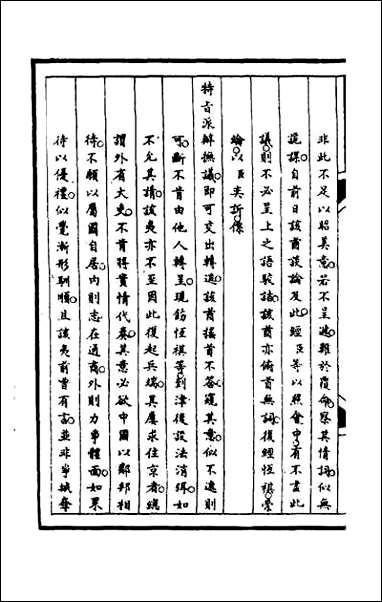 非此不足以昭美意若不呈遞難於覆命察其情詞似無
詭謀自前日該酋談論及此經臣等以照會中有不盡此
議則不必呈上之語駁詰該酋亦俯首無詞復經恆祺帶
諭以臣奕訢係
特旨派辦撫議即可交出轉遞該酋搖首不答窺其意似不遞則
可斷不肯由他人轉呈現飭恆祺等到津後設法消弭如
不允其請該夷亦不至因此復起兵端其屢求住京者總
謂外省大吏不肯將實情代奏其意必欲中國以鄰邦相
待不願以屬國自居內則志在通商外則力爭體面如果
待以優禮似覺漸形馴順且該夷前曾有言並非爭城奪